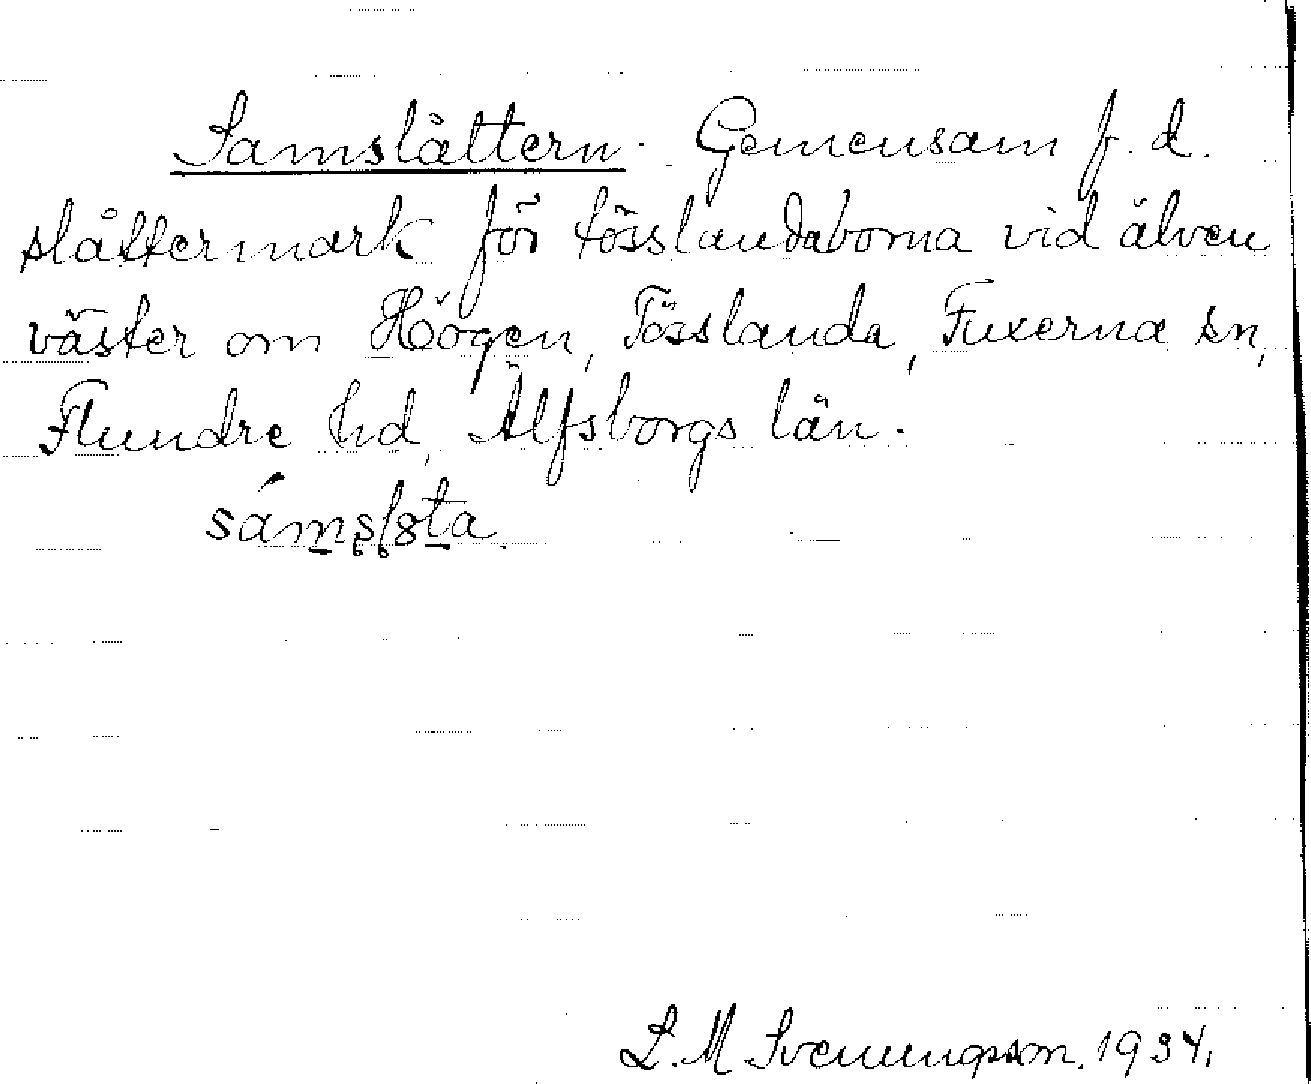 Samslåttern. Gemensam f. d.
slåttermark för tösslandaborna vid älven
väster om Högen, Tösslanda, Fuxerna sn,
Flundre hd, Älfsborgs län.
L. M Svenungsson. 1934.